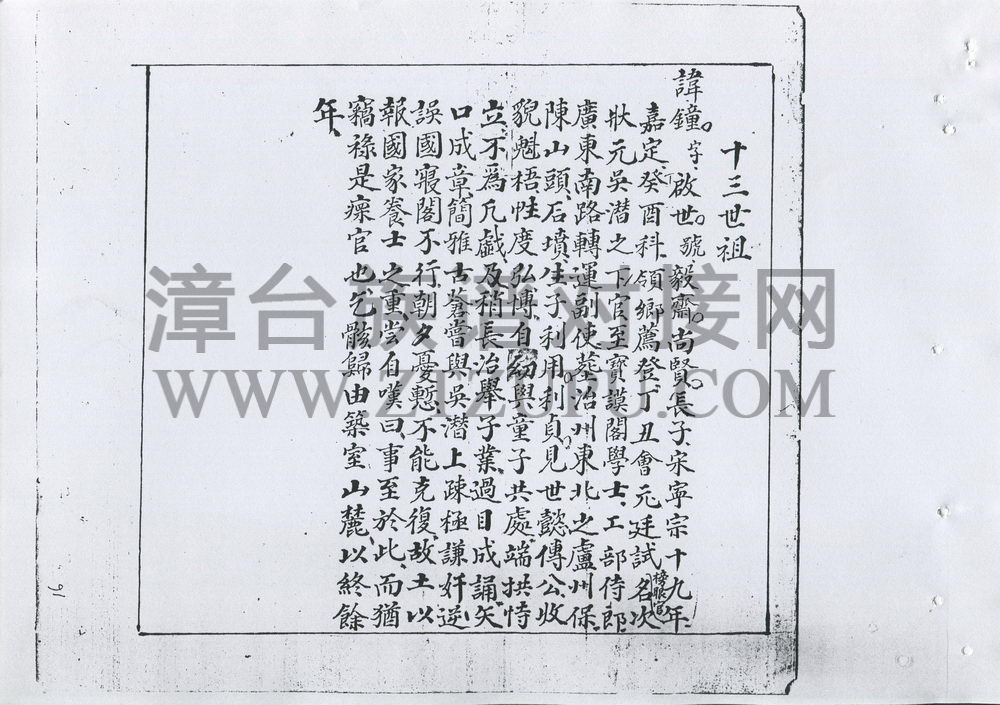 十三世祖
諱鐘。字、啟世。號毅齋。尚賢。長子、宋寧宗十九年
嘉定癸酉科、領鄉薦登丁丑會元廷試名次
榜眼官
狀元吳潛之下官至寶謨閣學士、工部侍郎
廣東南路轉運副使墓治州東北之盧州保、
陳山頭、石墳、生子利用。利貞。見世懿傳公、收
貌魁梧、性度弘博、自幼與童子共處、端拱恃
立、不為凡戲及稍長治舉子業、過目成誦矢
口成章、簡雅古蒼嘗與吳潛上疎極謙奸逆
誤國寢閣不行、朝夕憂慙、不能克復、故土以
報國家養士之重、嘗自嘆曰、事至於此、而猶
竊祿是瘝官也乞骸歸由築室山麓、以終餘
年、
16
漳台族谱对接网
WWW.ZTZUPU.COM